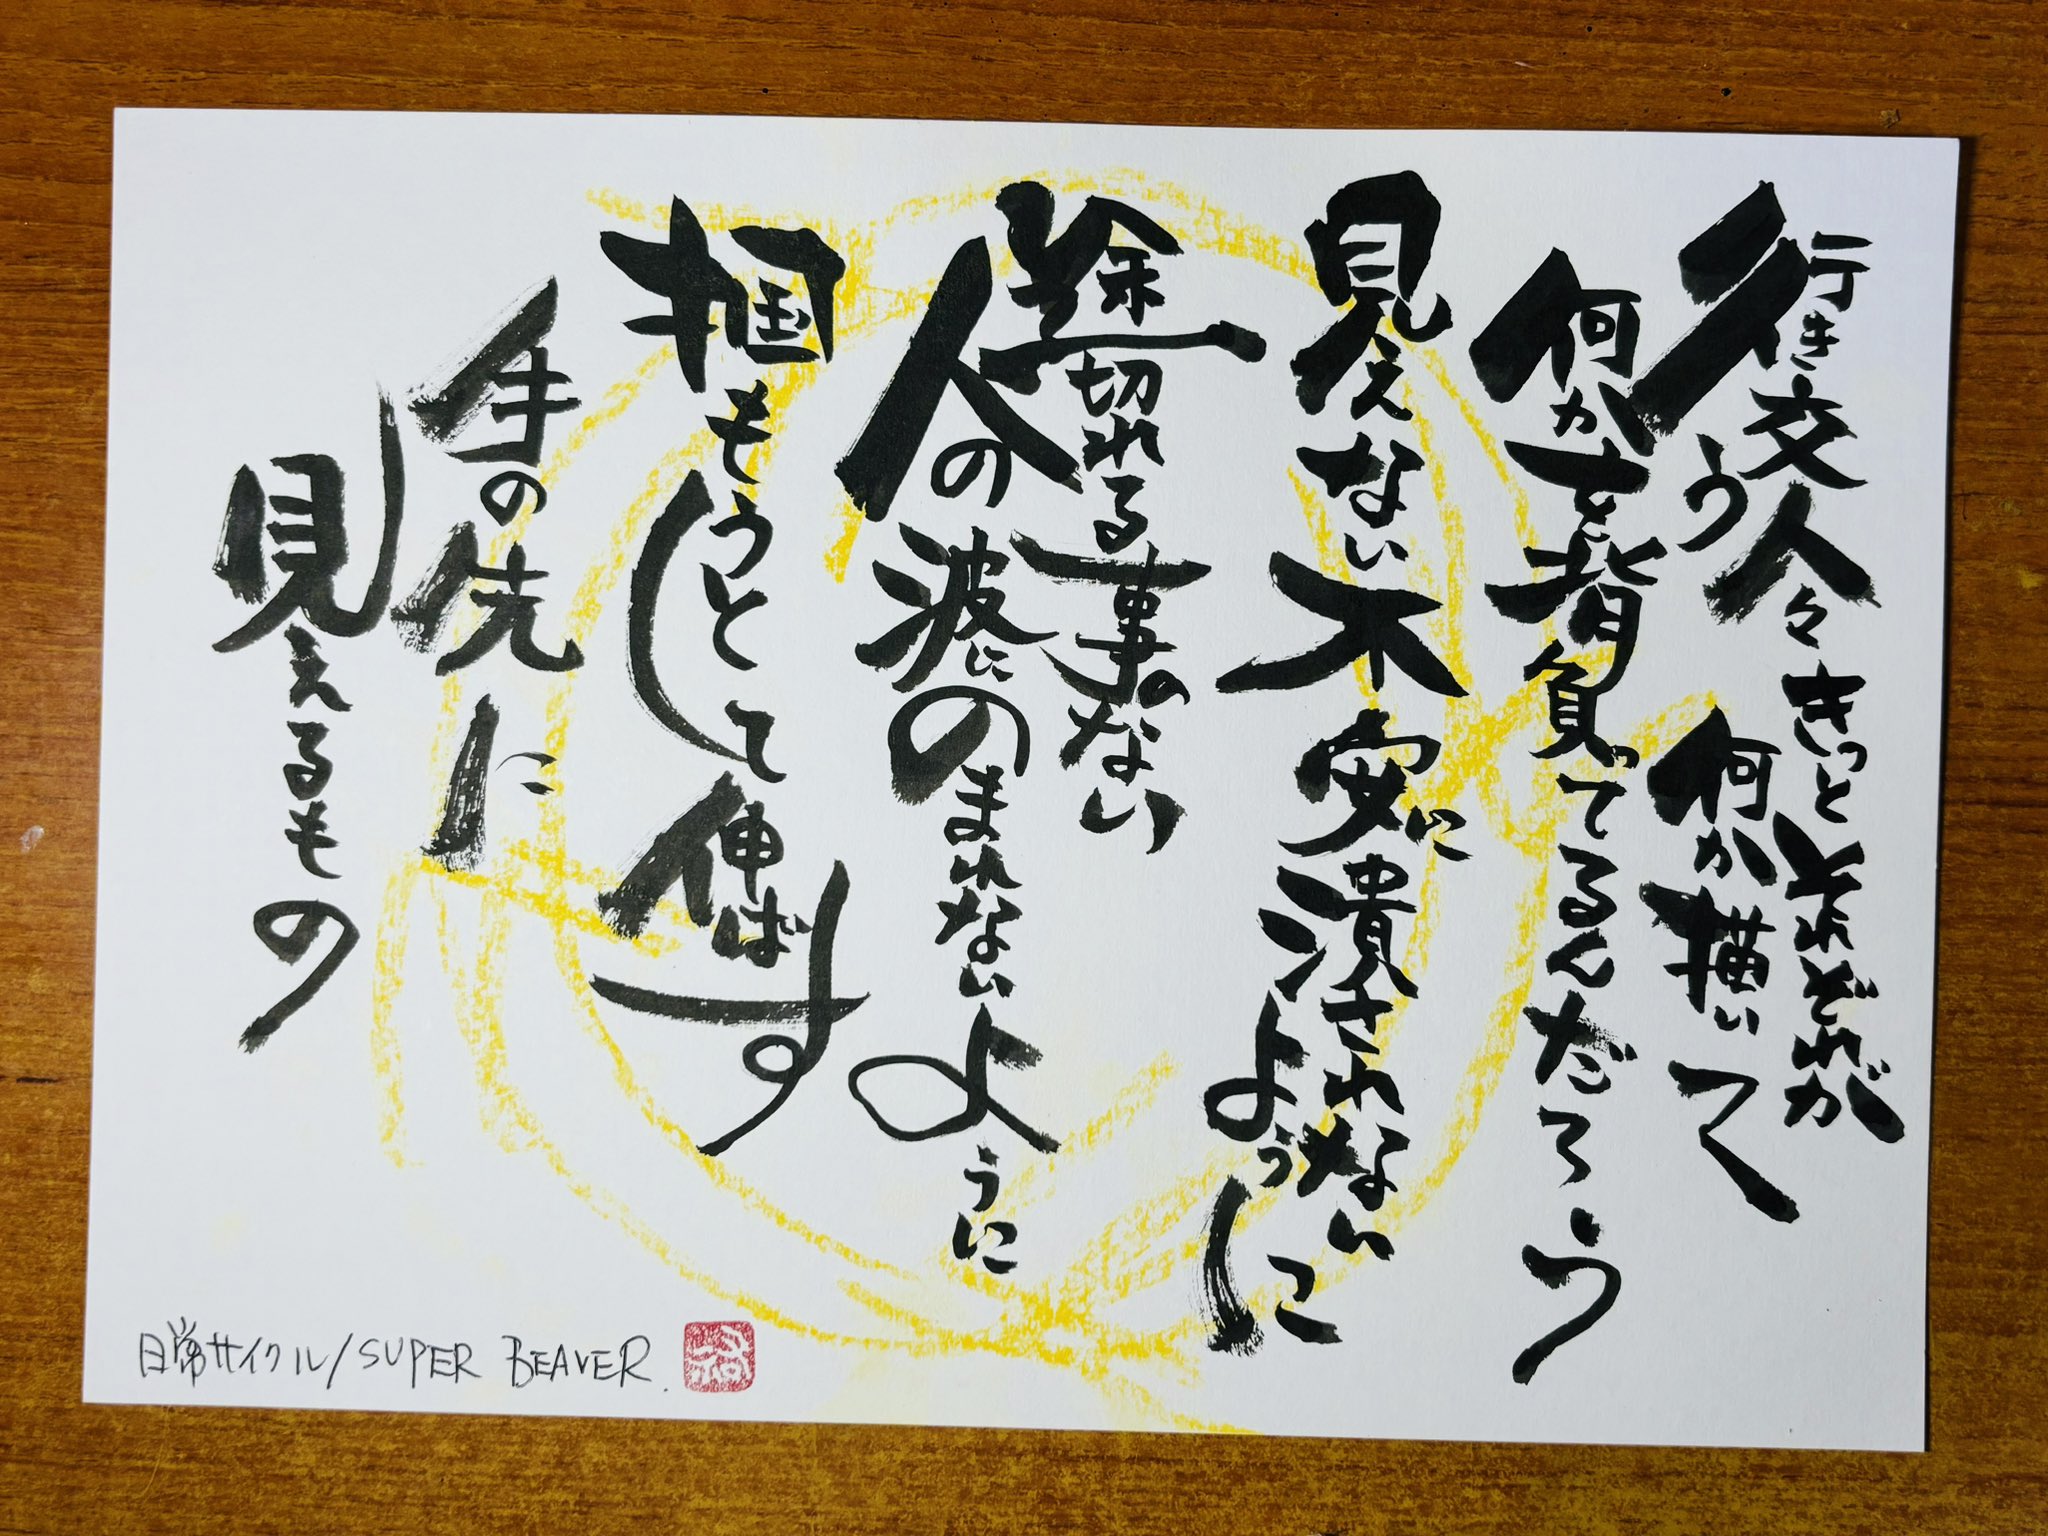 行き交う人々きっとそれぞれが
何か描いて
何かを背負ってるんだろう
見えない不安に潰されないように
途切れる事のない
人の波にのまれないように
掴もうとして伸ばす
手の先に
見えるもの
日常サイクル/SUPER BEAVER.